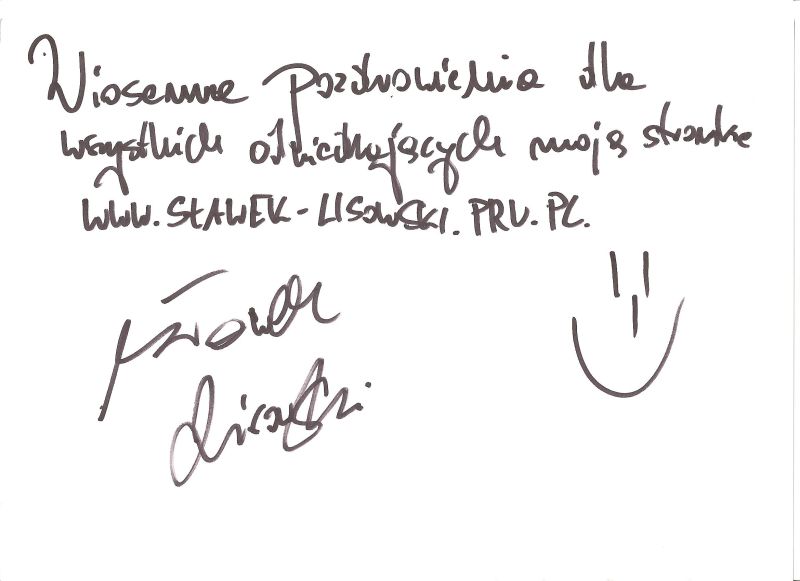 Wiosenne pozdrowienia dla
wszystkich odwiedzających moją stronkę
WWW.SŁAWEK-LISOWSKI.PRV.PL.
Sławek
Lisowski